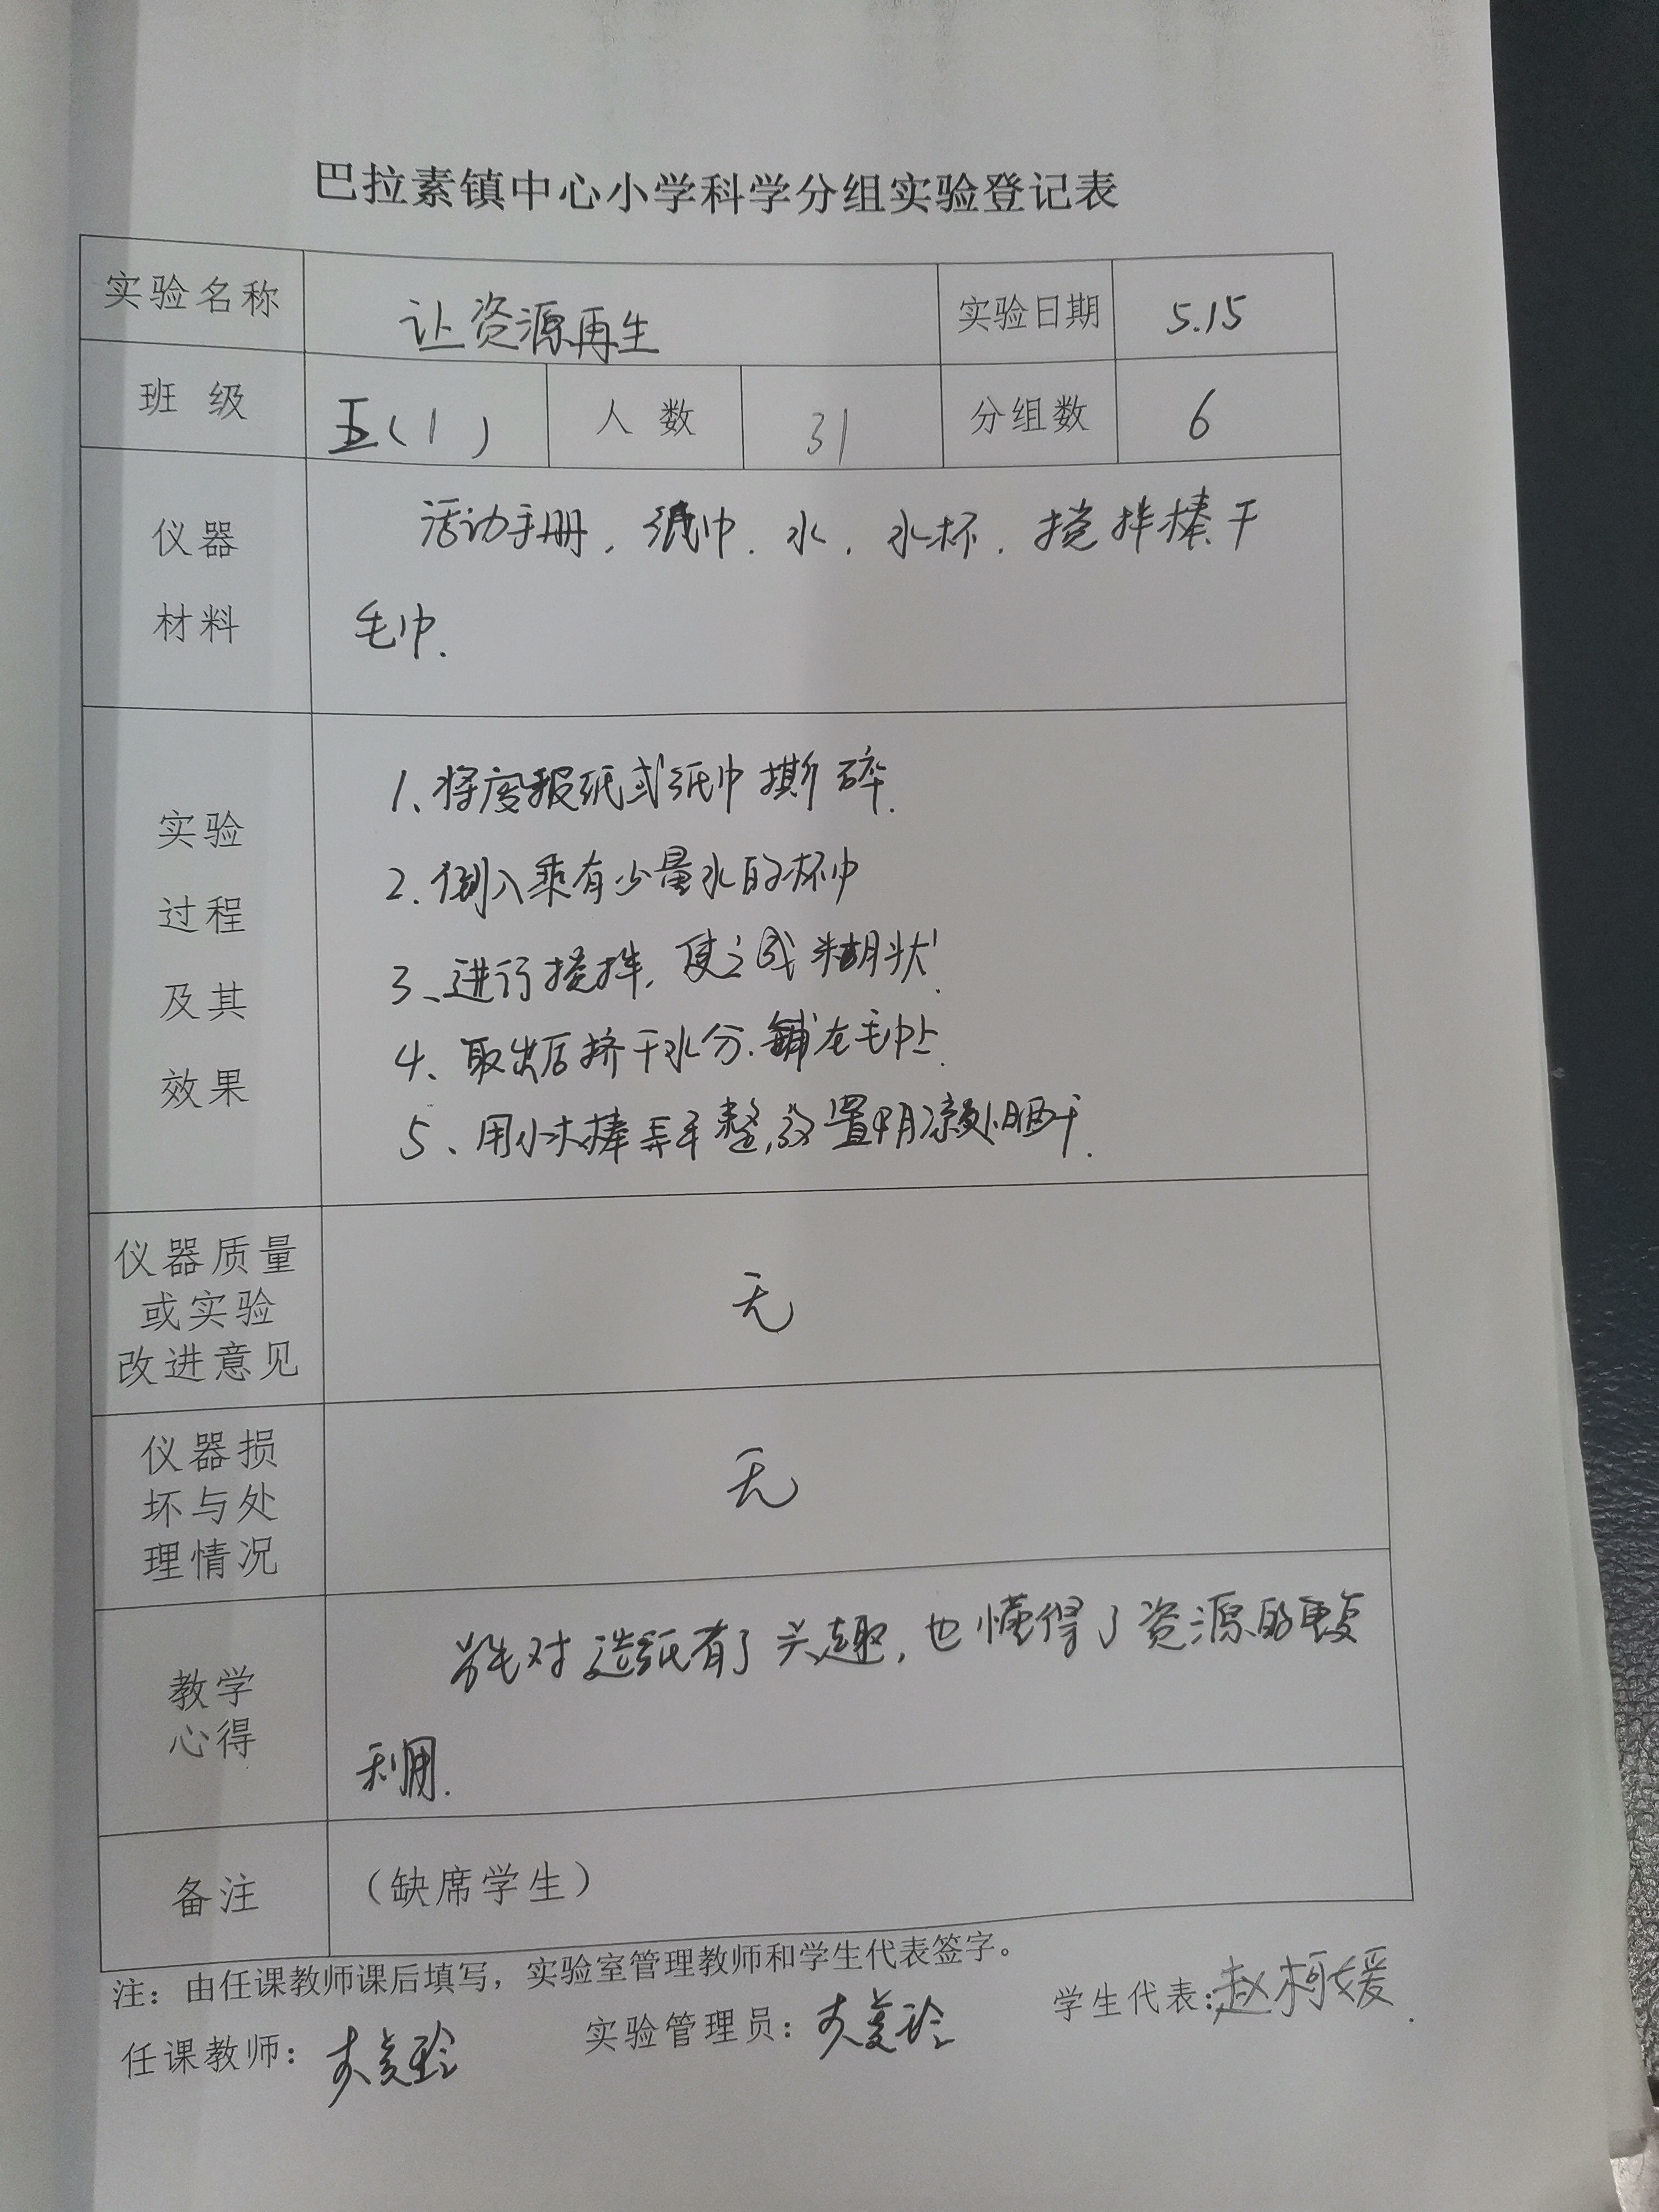 巴拉素镇中心小学科学分组实验登记表
实验名称 让资源再生 实验日期 5.15
班 级 五(1) 人 数 31 分组数 6
仪器
材料
活动手册, 纸巾. 水, 水杯, 搅拌棒. 干
毛巾.
实验
过程
及其
效果
1、将废报纸或纸巾撕碎.
2. 倒入乘有少量水的杯中
3、进行搅拌, 使之成糊状.
4、取出后挤干水分. 铺在毛巾上.
5、用小木棒弄平整, 放置阴凉处晒干.
仪器质量
或实验
改进意见
无
仪器损
坏与处
理情况
无
教学
心得
学生对造纸有了兴趣, 也懂得了资源的重复
利用.
备注 （缺席学生）
注：由任课教师课后填写，实验室管理教师和学生代表签字。
任课教师： 实验管理员： 学生代表：赵柯媛